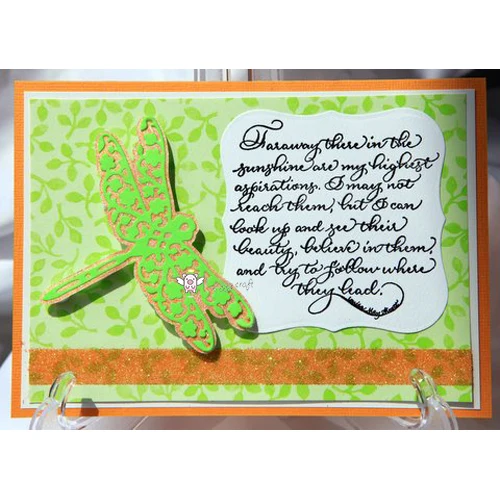 Faraway there in the
sunshine are my highest
aspirations. I may not
reach them, but I can
look up and see their
beauty, believe in them,
and try to follow where
they lead.
Louisa May Alcott
craft